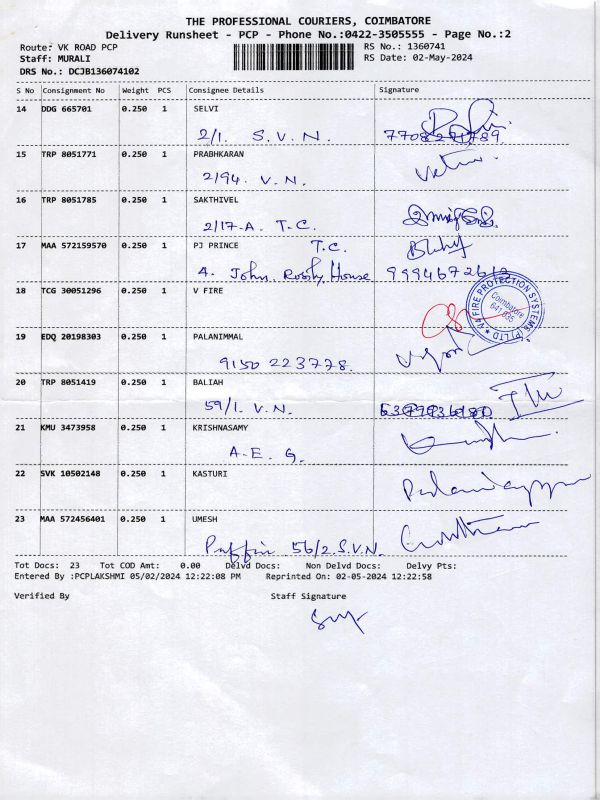 THE PROFESSIONAL COURIERS, COIMBATORE
Delivery Runsheet - PCP - Phone No.:0422-3505555 - Page No.:2
Route: VK ROAD PCP RS No.: 1360741
Staff: MURALI RS Date: 02-May-2024
DRS No.: DCJB136074102
S No Consignment No Weight PCS Consignee Details Signature
14 DDG 665701 0.250 1 SELVI
2/1. S.V.N.
15 TRP 8051771 0.250 1 PRABHKARAN
2/94. V.N.
16 TRP 8051785 0.250 1 SAKTHIVEL
2/17-A T.C.
17 MAA 572159570 0.250 1 PJ PRINCE T.C.
4. John House
18 TCG 30051296 0.250 1 V FIRE
V4 FIRE PROTECTION SYSTEMS (P) LTD
Coimbatore
641 035
19 EDQ 20198303 0.250 1 PALANIMMAL
9150 223778.
20 TRP 8051419 0.250 1 BALIAH
59/1. V.N.
21 KMU 3473958 0.250 1 KRISHNASAMY
A.E.G.
22 SVK 10502148 0.250 1 KASTURI
23 MAA 572456401 0.250 1 UMESH
Puffin 56/2 S.V.N.
Tot Docs: 23 Tot COD Amt: 0.00 Delvd Docs: Non Delvd Docs: Delvy Pts:
Entered By :PCPLAKSHMI 05/02/2024 12:22:08 PM Reprinted On: 02-05-2024 12:22:58
Verified By Staff Signature